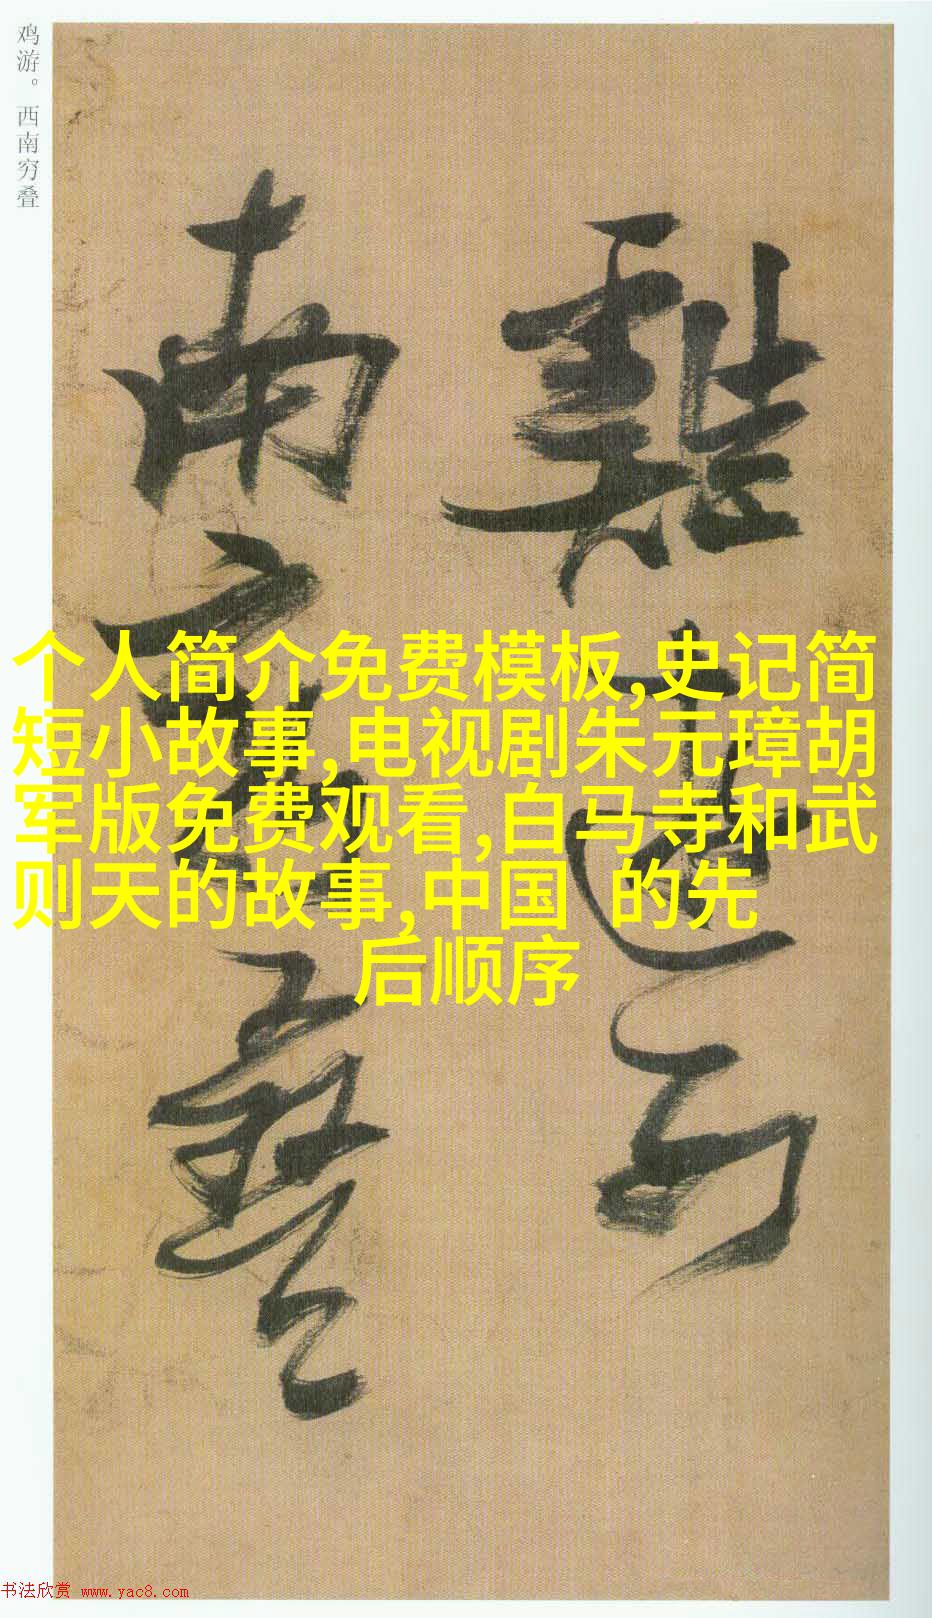 鸡游。西南穷叠
雞遊西
南窮疊
个人简介免费模板,史记简
短小故事,电视剧朱元璋胡
军版免费观看,白马寺和武
则天的故事,中国  的先
后顺序
书法欣赏 www.yac8.com